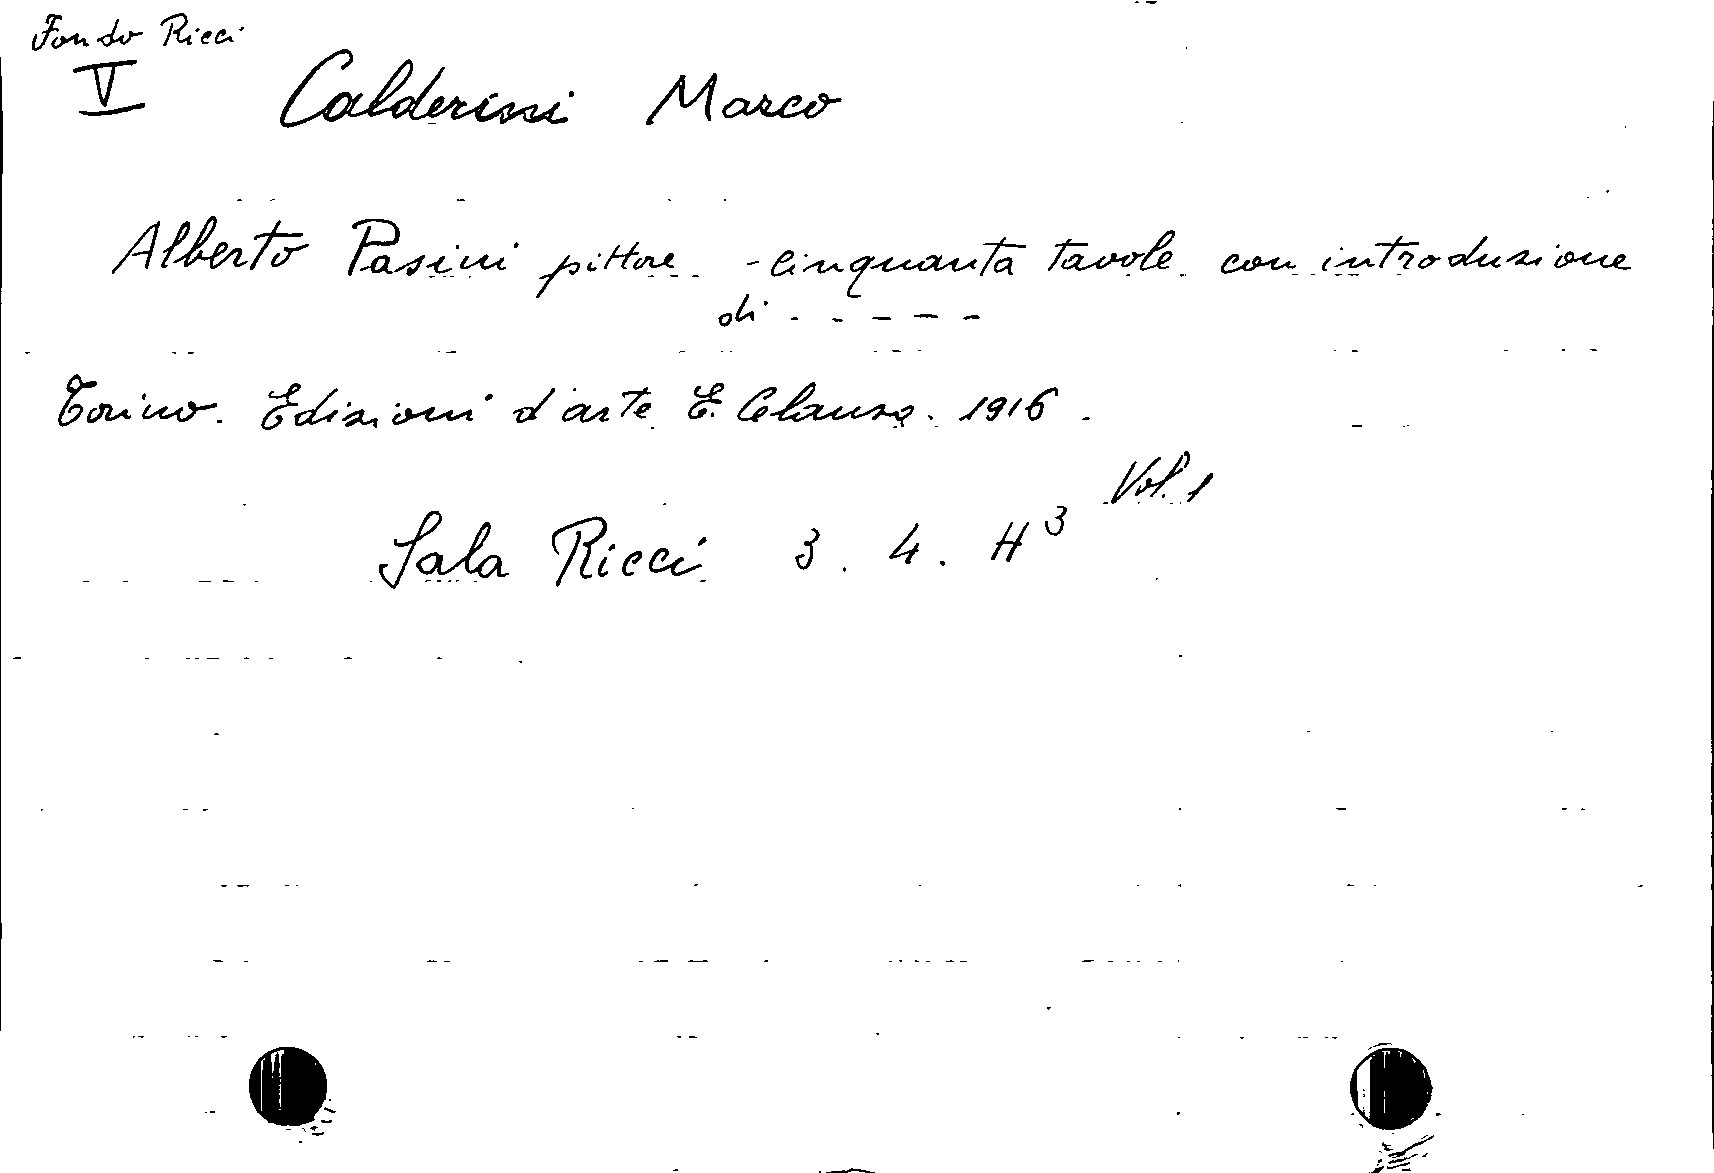 Fondo Ricci
V Calderini Marco
Alberto Pasini pittore - cinquanta tavole con introduzione
di - - - - -
Torino. Edizioni d'arte E. Celanza. 1916.
Vol. 1
Sala Ricci 3. 4. H³